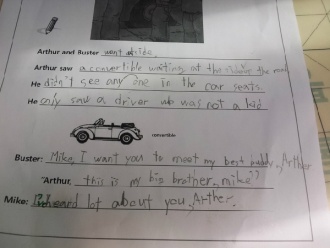 Arthur and Buster went outside.
Arthur saw a convertible waiting at the side the road
He didn't see any one in the car seats.
He only saw a driver who was not a kid
convertible
Buster: Mike, I want you to meet my best buddy, Arther
"Arthur, this is my big brother, mike"
Mike: I heard lot about you, Arther.